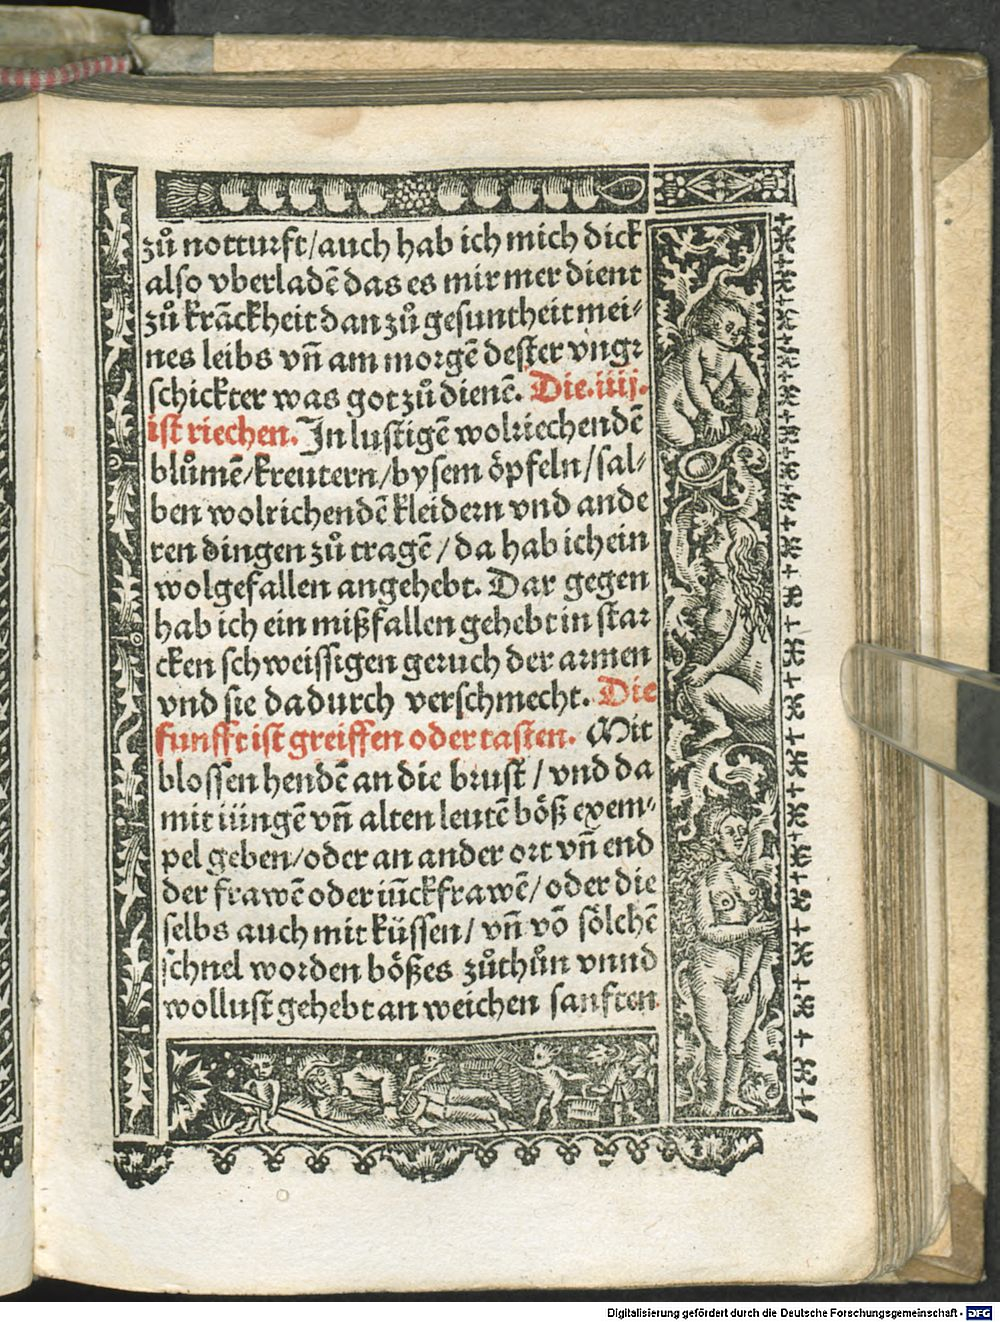 zů notturft/auch hab ich mich dick
also vberladē das es mir mer dient
zů krāckheit dan zů gesuntheit mei⸗
nes leibs vn̄ am morgē dester vnge
schickter was got zů dienē. Die .iiij.
ist riechen. In lustigē wolriechendē
blůmē/kreutern/bysem öpfeln/sal⸗
ben wolrichendē kleidern vnd ande
ren dingen zů tragē/da hab ich ein
wolgefallen angehebt. Dar gegen
hab ich ein mißfallen gehebt in star
cken schweissigen geruch der armen
vnd sie dadurch verschmecht. Die
funfft ist greiffen oder tasten. Mit
blossen hendē an die brust/vnd da
mit iüngē vn̄ alten leutē böß exem⸗
pel geben/oder an ander ort vn̄ end
der frawē oder iūckfrawē/oder die
selbs auch mit küssen/vn̄ vō sölchē
schnel worden bößes zůthůn vnnd
wollust gehebt an weichen sanften
Digitalisierung gefördert durch die Deutsche Forschungsgemeinschaft - DFG